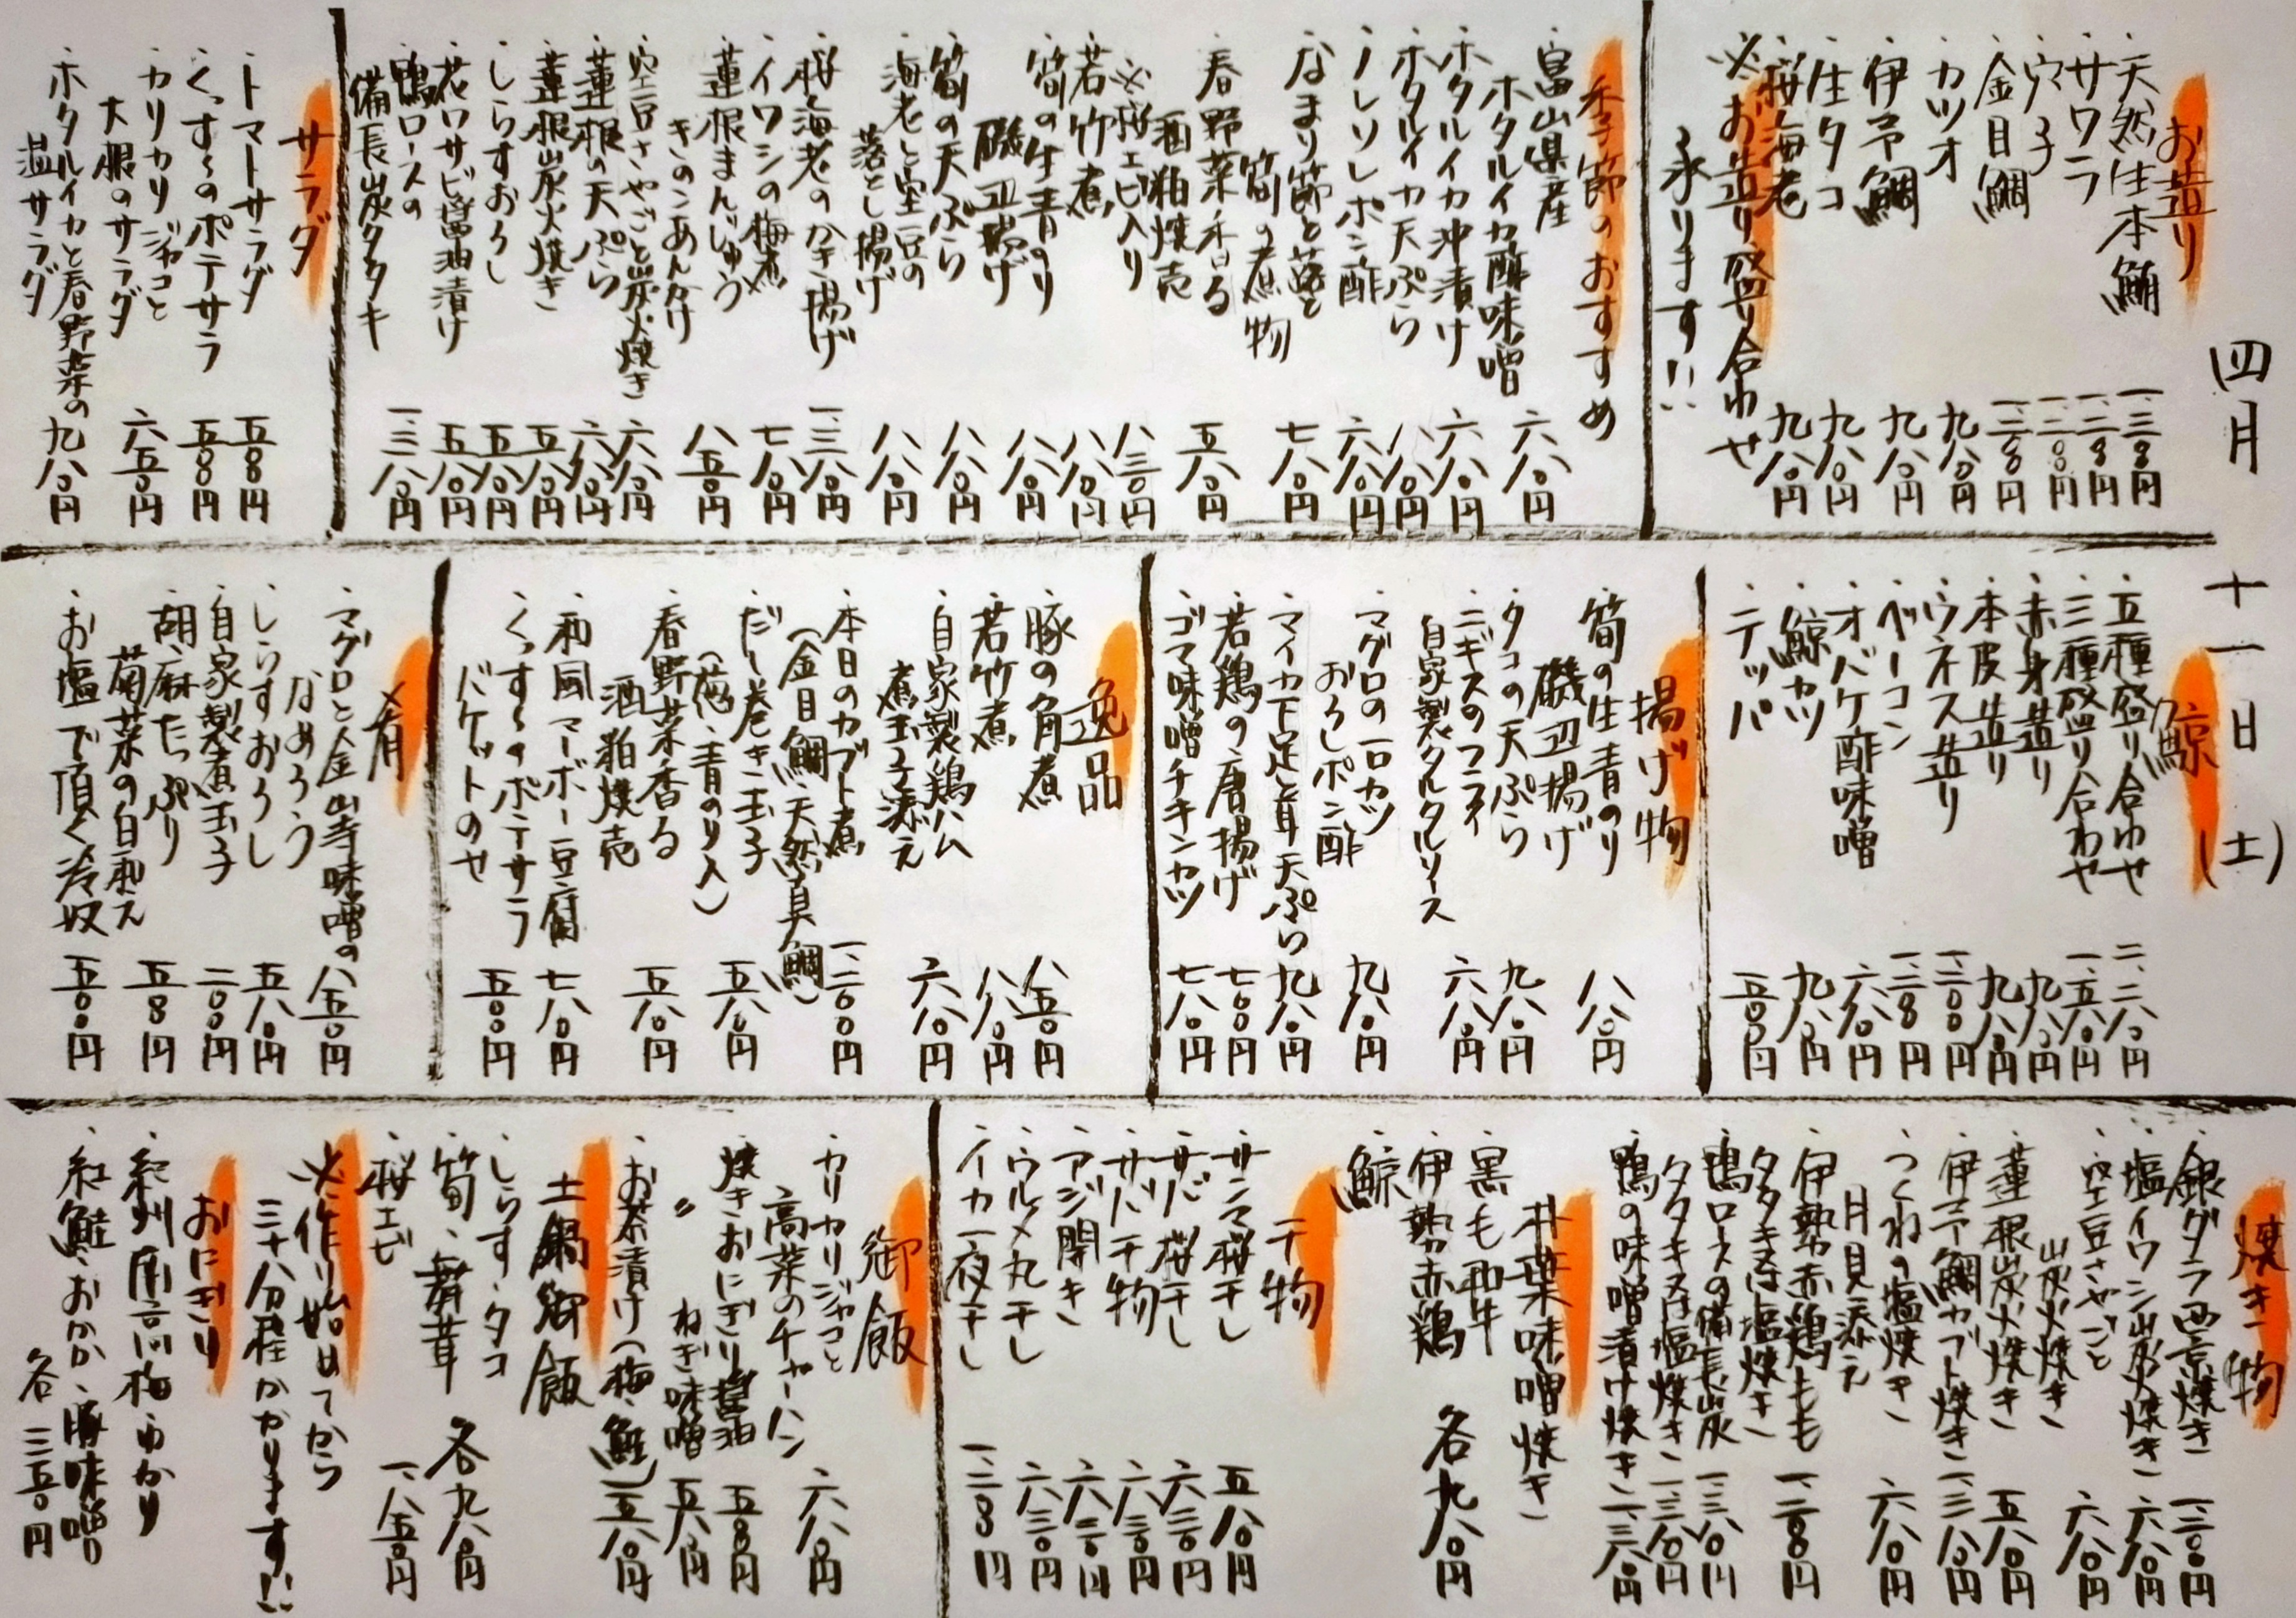 四月十一日(土)
お造り
・天然生本鮪 一、三八〇円
・サワラ 一、二八〇円
・穴子 一、二〇〇円
・金目鯛 一、三八〇円
・カツオ 九八〇円
・伊予鯛 九八〇円
・生タコ 九八〇円
・桜海老 九八〇円
※お造り盛り合わせ
承ります!!
季節のおすすめ
・富山県産
ホタルイカ酢味噌 六八〇円
・ホタルイカ沖漬け 六八〇円
・ホタルイカ天ぷら 八八〇円
・ノレソレポン酢 六八〇円
・なまり節と蕗と
筍の煮物 七八〇円
・春野菜香る
酒粕焼売 五八〇円
※桜エビ入り 八三〇円
・若竹煮 八八〇円
・筍の生青のり
磯辺揚げ 八八〇円
・筍の天ぷら 八八〇円
・海老と空豆の
落とし揚げ 八八〇円
・桜海老のかき揚げ 一、三八〇円
・イワシの梅煮 七八〇円
・蓮根まんじゅう
きのこあんかけ 八五〇円
・空豆さやごと炭火焼き 六八〇円
・蓮根の天ぷら 六八〇円
・蓮根炭火焼き 五八〇円
・しらすおろし 五八〇円
・花ワサビ醤油漬け 五八〇円
・鴨ロースの
備長炭タタキ 一、三八〇円
サラダ
・トマトサラダ 五八〇円
・くっすぅのポテサラ 五〇〇円
・カリカリジャコと
大根のサラダ 六五〇円
・ホタルイカと春野菜の
温サラダ 九八〇円
鯨
・五種盛り合わせ 二、二八〇円
・三種盛り合わせ 一、五八〇円
・赤身造り 九八〇円
・本皮造り 九八〇円
・ウネス造り 一、二〇〇円
・ベーコン 一、二八〇円
・オバケ酢味噌 六八〇円
・鯨カツ 九八〇円
・テッパ 五〇〇円
揚げ物
・筍の生青のり
磯辺揚げ 八八〇円
・タコの天ぷら 九八〇円
・ニギスのフライ
自家製タルタルソース 六八〇円
・マグロの一口カツ
おろしポン酢 九八〇円
・マイカ下足と耳天ぷら 九八〇円
・若鶏の唐揚げ 七〇〇円
・ゴマ味噌チキンカツ 七八〇円
逸品
・豚の角煮 八五〇円
・若竹煮 八八〇円
・自家製鶏ハム
煮玉子添え 六八〇円
・本日のカブト煮
(金目鯛、天然真鯛) 一、二〇〇円
・だし巻き玉子
(葱、青のり入) 五八〇円
・春野菜香る
酒粕焼売 五八〇円
・和風マーボー豆腐 七八〇円
・くっすぅのポテサラ
バケットのせ 五〇〇円
肴
・マグロと金山寺味噌の
なめろう 八五〇円
・しらすおろし 五八〇円
・自家製煮玉子 二〇〇円
・胡麻たっぷり
菊菜の白和え 五八〇円
・お塩で頂く冷奴 五〇〇円
焼き物
・銀ダラ西京焼き 一、三〇〇円
・塩イワシ炭火焼き 六八〇円
・空豆さやごと
炭火焼き 六八〇円
・蓮根炭火焼き 五八〇円
・伊予鯛カブト焼き 一、三八〇円
・つくねの塩焼き
月見添え 六八〇円
・伊勢赤鶏もも
タタキ又は塩焼き 一、二八〇円
・鴨ロースの備長炭
タタキ又は塩焼き 一、三八〇円
・鴨の味噌漬け焼き 一、三八〇円
朴葉味噌焼き
・黒毛和牛
・伊勢赤鶏
・鯨
各九八〇円
干物
・サンマ桜干し 五八〇円
・サバ桜干し 六三〇円
・サバ干物 六三〇円
・アジ開き 六三〇円
・ウルメ丸干し 六三〇円
・イカ一夜干し 一、二八〇円
御飯
・カリカリジャコと
高菜のチャーハン 六八〇円
・焼きおにぎり醤油 五〇〇円
〃 ねぎ味噌 五八〇円
・お茶漬け(梅、鮭) 五八〇円
土鍋御飯
・しらす・タコ
・筍、舞茸 各九八〇円
・桜エビ 一、八五〇円
※作り始めてから
三十分程かかります!!
おにぎり
・紀州南高梅・ゆかり
・紅鮭・おかか・豚味噌
各三五〇円